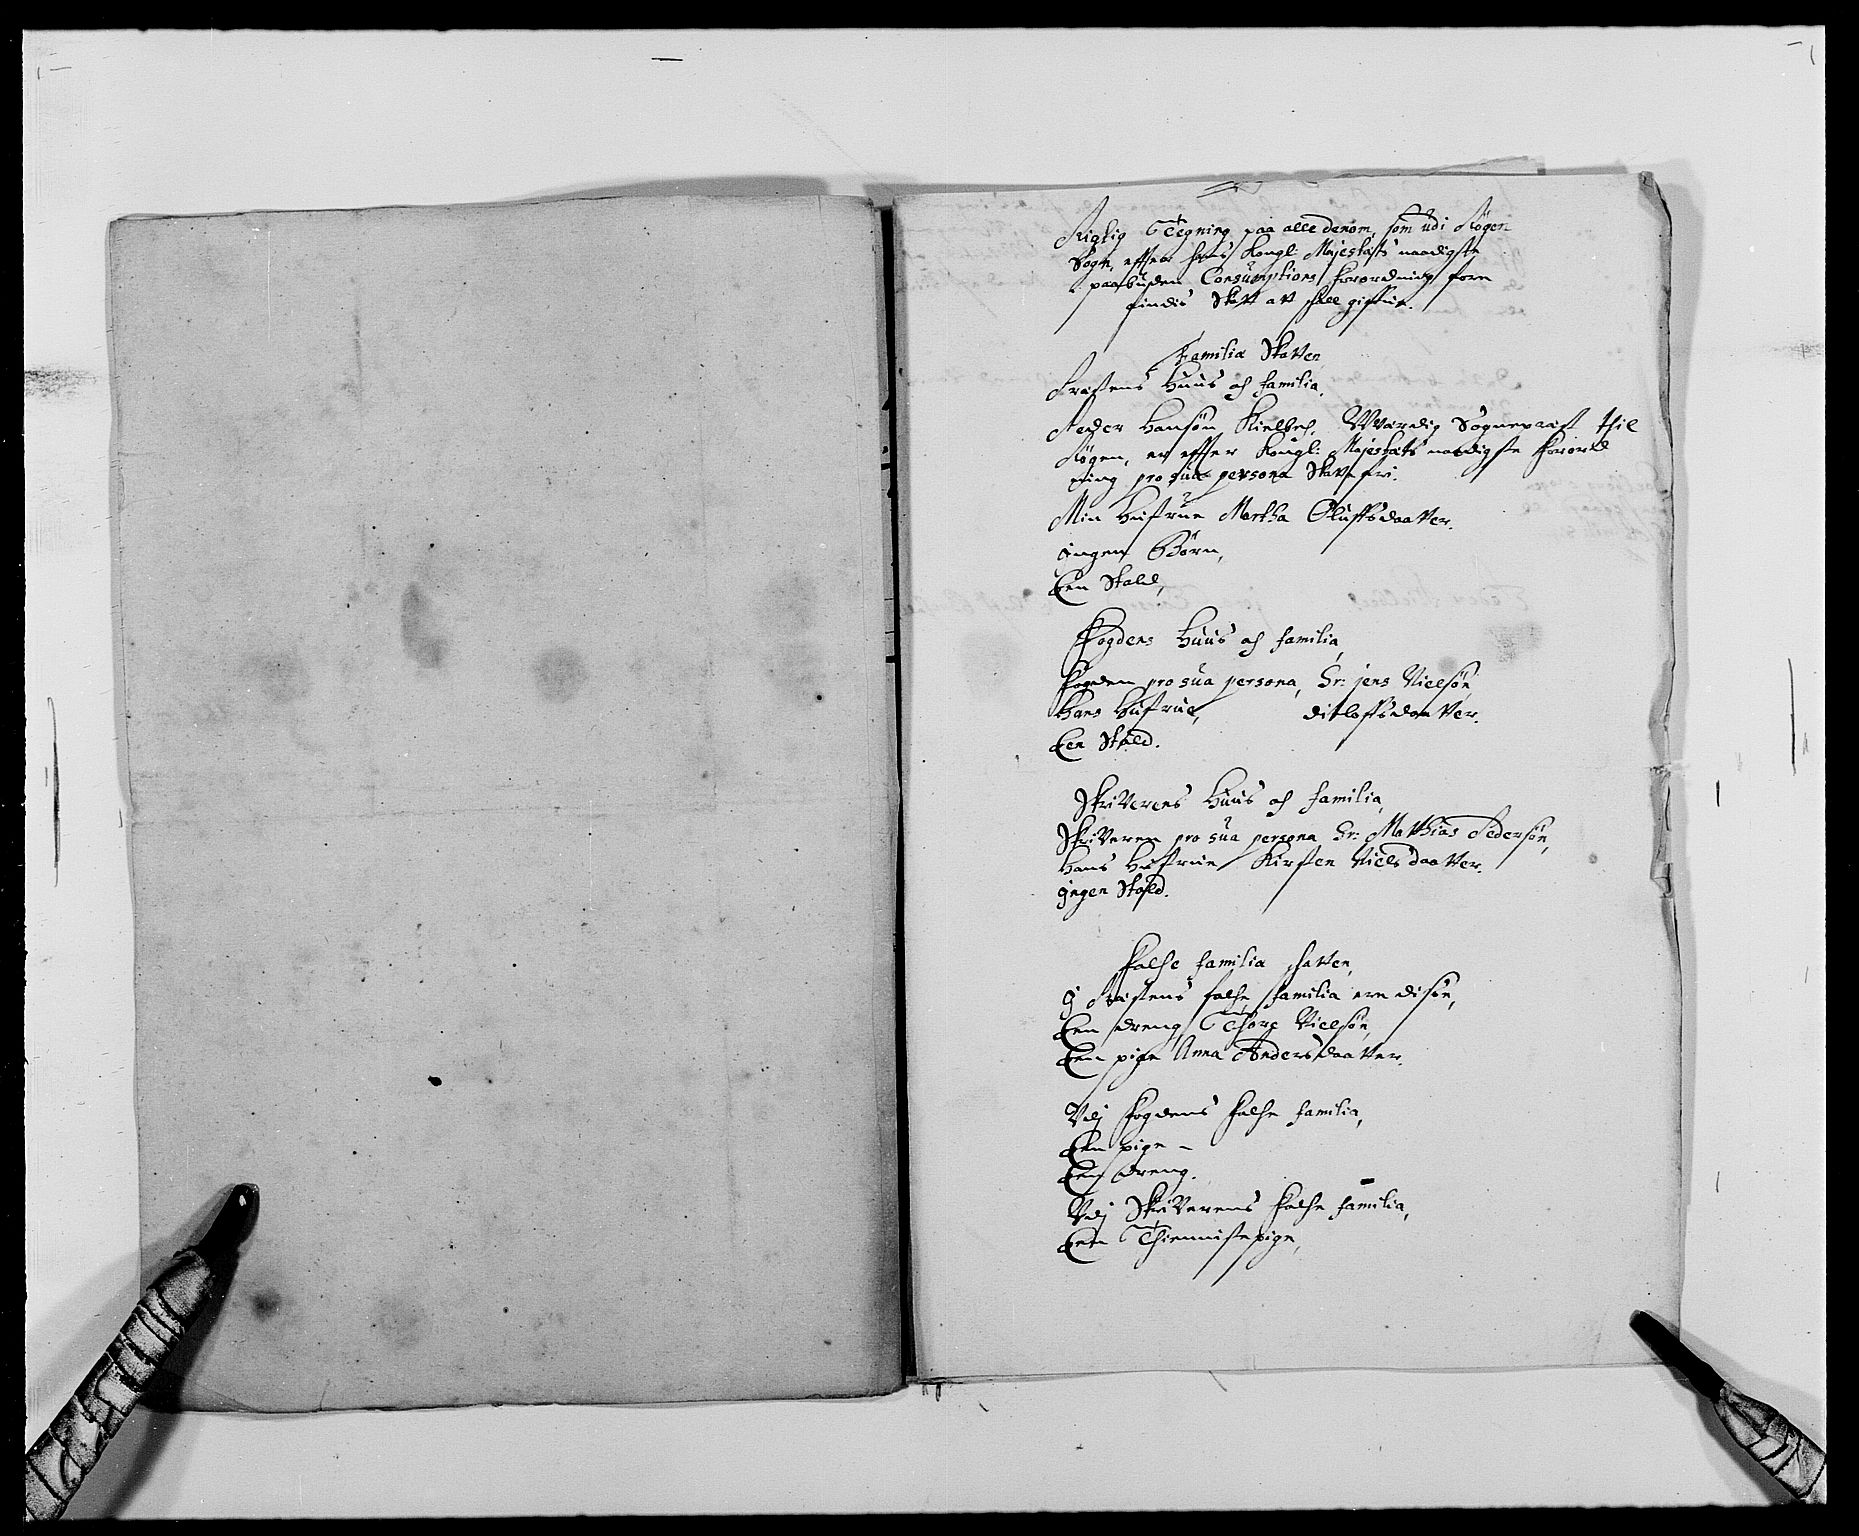 Rigtig Tegning paa alle denom, som udi Røgen
Sogn, effter hans Kongl: Majestæts naadigste
paabudene Consumptions forordning
findis Skatt at skall giffue.
Familiæ Skatten
Præstens Huus och familia,
Peder Hansøn Kielbech, Wværdig Sognepræst thil
Røgen, er effter Kongl: Majestæts naadigste forord
ning pro sua persona Skatt fri.
Min Hustrue Martha Oluffsdaatter.
ingen Børn,
Een Stald,
Fogdens Huus och familia,
fogden pro sua persona, Sr: jens Nielsøn,
Hans Hustrue, ditloffsdaatter.
Een Stald.
Skriverens Huus och familia,
Skriveren pro sua persona Sr: Matthias Pedersøn,
Hans Hustrue Kirsten Nielsdaatter.
ingen Stald.
Falske familia skatten,
J Præstens falske familia ere disse,
Een dreng Thorge Nielsøn,
Een pige Anna Andersdaatter.
Vdj fogdens falske familia,
Een pige –
Een dreng.
Vdj Skriverens falske familia,
Een Thiennistepige,